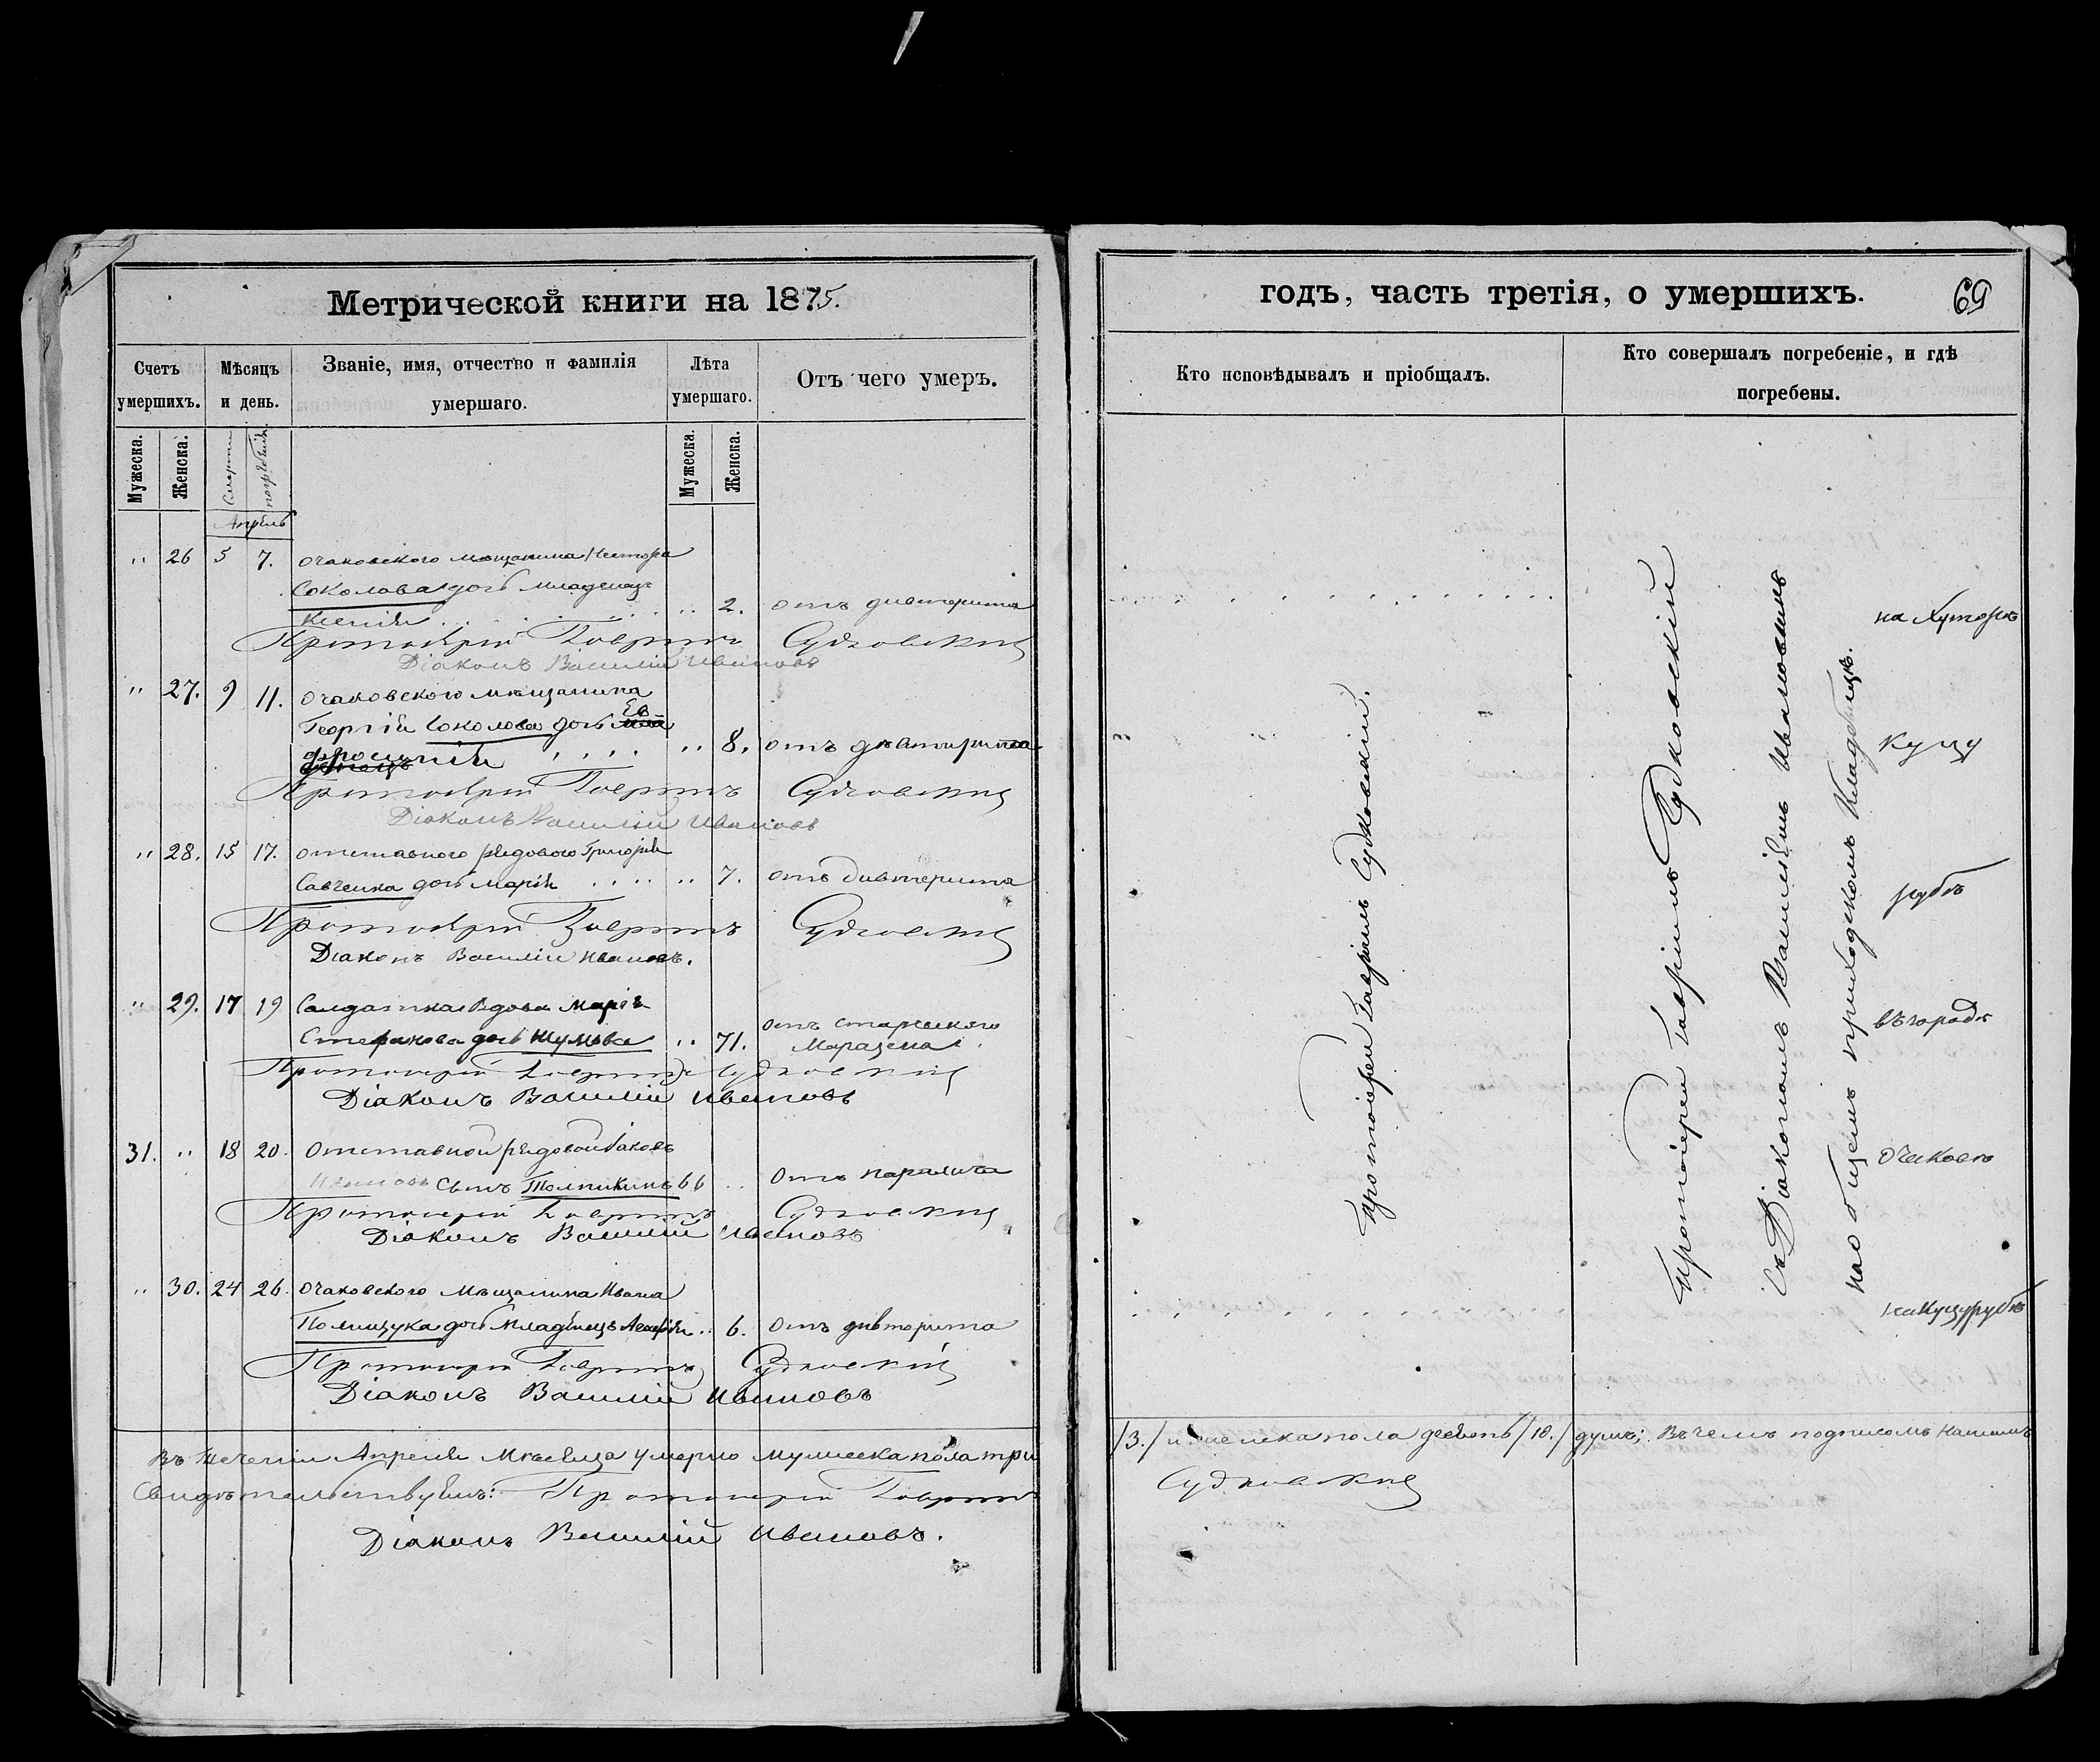 Метрической книги на 1875.
Счетъ умершихъ.
Мѣсяцъ и день.
Званіе, имя, отчество и фамилія умершаго.
Лѣта умершаго.
Отъ чего умеръ.
Мужеска.
Женска.
Смерти
погребенія.
Мужеска.
Женска.
Апрѣль
" 26 5 7. Очаковскаго мѣщанина Нестора
Соколова дочь младенецъ
Ксенія . . . . " 2. отъ дифтерита
Протоіерей Гавріилъ Судковскій
Діаконъ Василій Ивановъ
" 27. 9 11. Очаковскаго мѣщанина
Георгія Соколова дочь Ев-
фросинія . . . . " 8. отъ дифтерита
Протоіерей Гавріилъ Судковскій
Діаконъ Василій Ивановъ
" 28. 15 17. отставного рядового Григорія
Савченка дочь Марія . . . . " 7. отъ дифтерита
Протоіерей Гавріилъ Судковскій
Діаконъ Василій Ивановъ.
" 29. 17 19 Солдатская Вдова Марія
Стефанова дочь " 71. отъ старческого
Маразма.
Протоіерей Гавріилъ Судковскій
Діаконъ Василій Ивановъ
31. " 18 20. Отставной рядовой Іаковъ
Ивановъ Сынъ Толпикинъ 66 . . Отъ паралича
Протоіерей Гавріилъ Судковскій
Діаконъ Василій Ивановъ
" 30. 24 26. Очаковскаго Мѣщанина Ивана
Полищука дочь Младенецъ " 6. Отъ дифтерита
Протоіерей Гавріилъ Судковскій
Діаконъ Василій Ивановъ
Въ теченіи Апреля Мѣсяца умерло мужеска пола три
Свидѣтельствуемъ: Протоіерей Гавріилъ
Діаконъ Василій Ивановъ.
годъ, часть третія, о умершихъ.
69
Кто исповѣдывалъ и пріобщалъ.
Кто совершалъ погребеніе, и гдѣ погребены.
Протоіерей Гавріилъ Судковскій.
Протоіерей Гавріилъ Судковскій
съ Діакономъ Василіемъ Ивановымъ
на общемъ приходскомъ кладбищѣ.
на Хуторѣ
Куцу
рубѣ
въ городѣ
Очаковѣ
на Куцурубѣ
/3./ и женска пола девять /10./ душъ; Въ чемъ подписомъ нашимъ
Судковскій